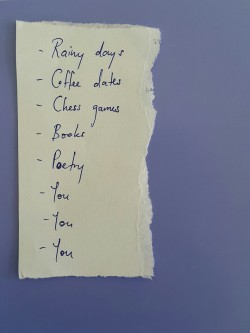 - Rainy days
- Coffee dates
- Chess games
- Books
- Poetry
- You
- You
- You